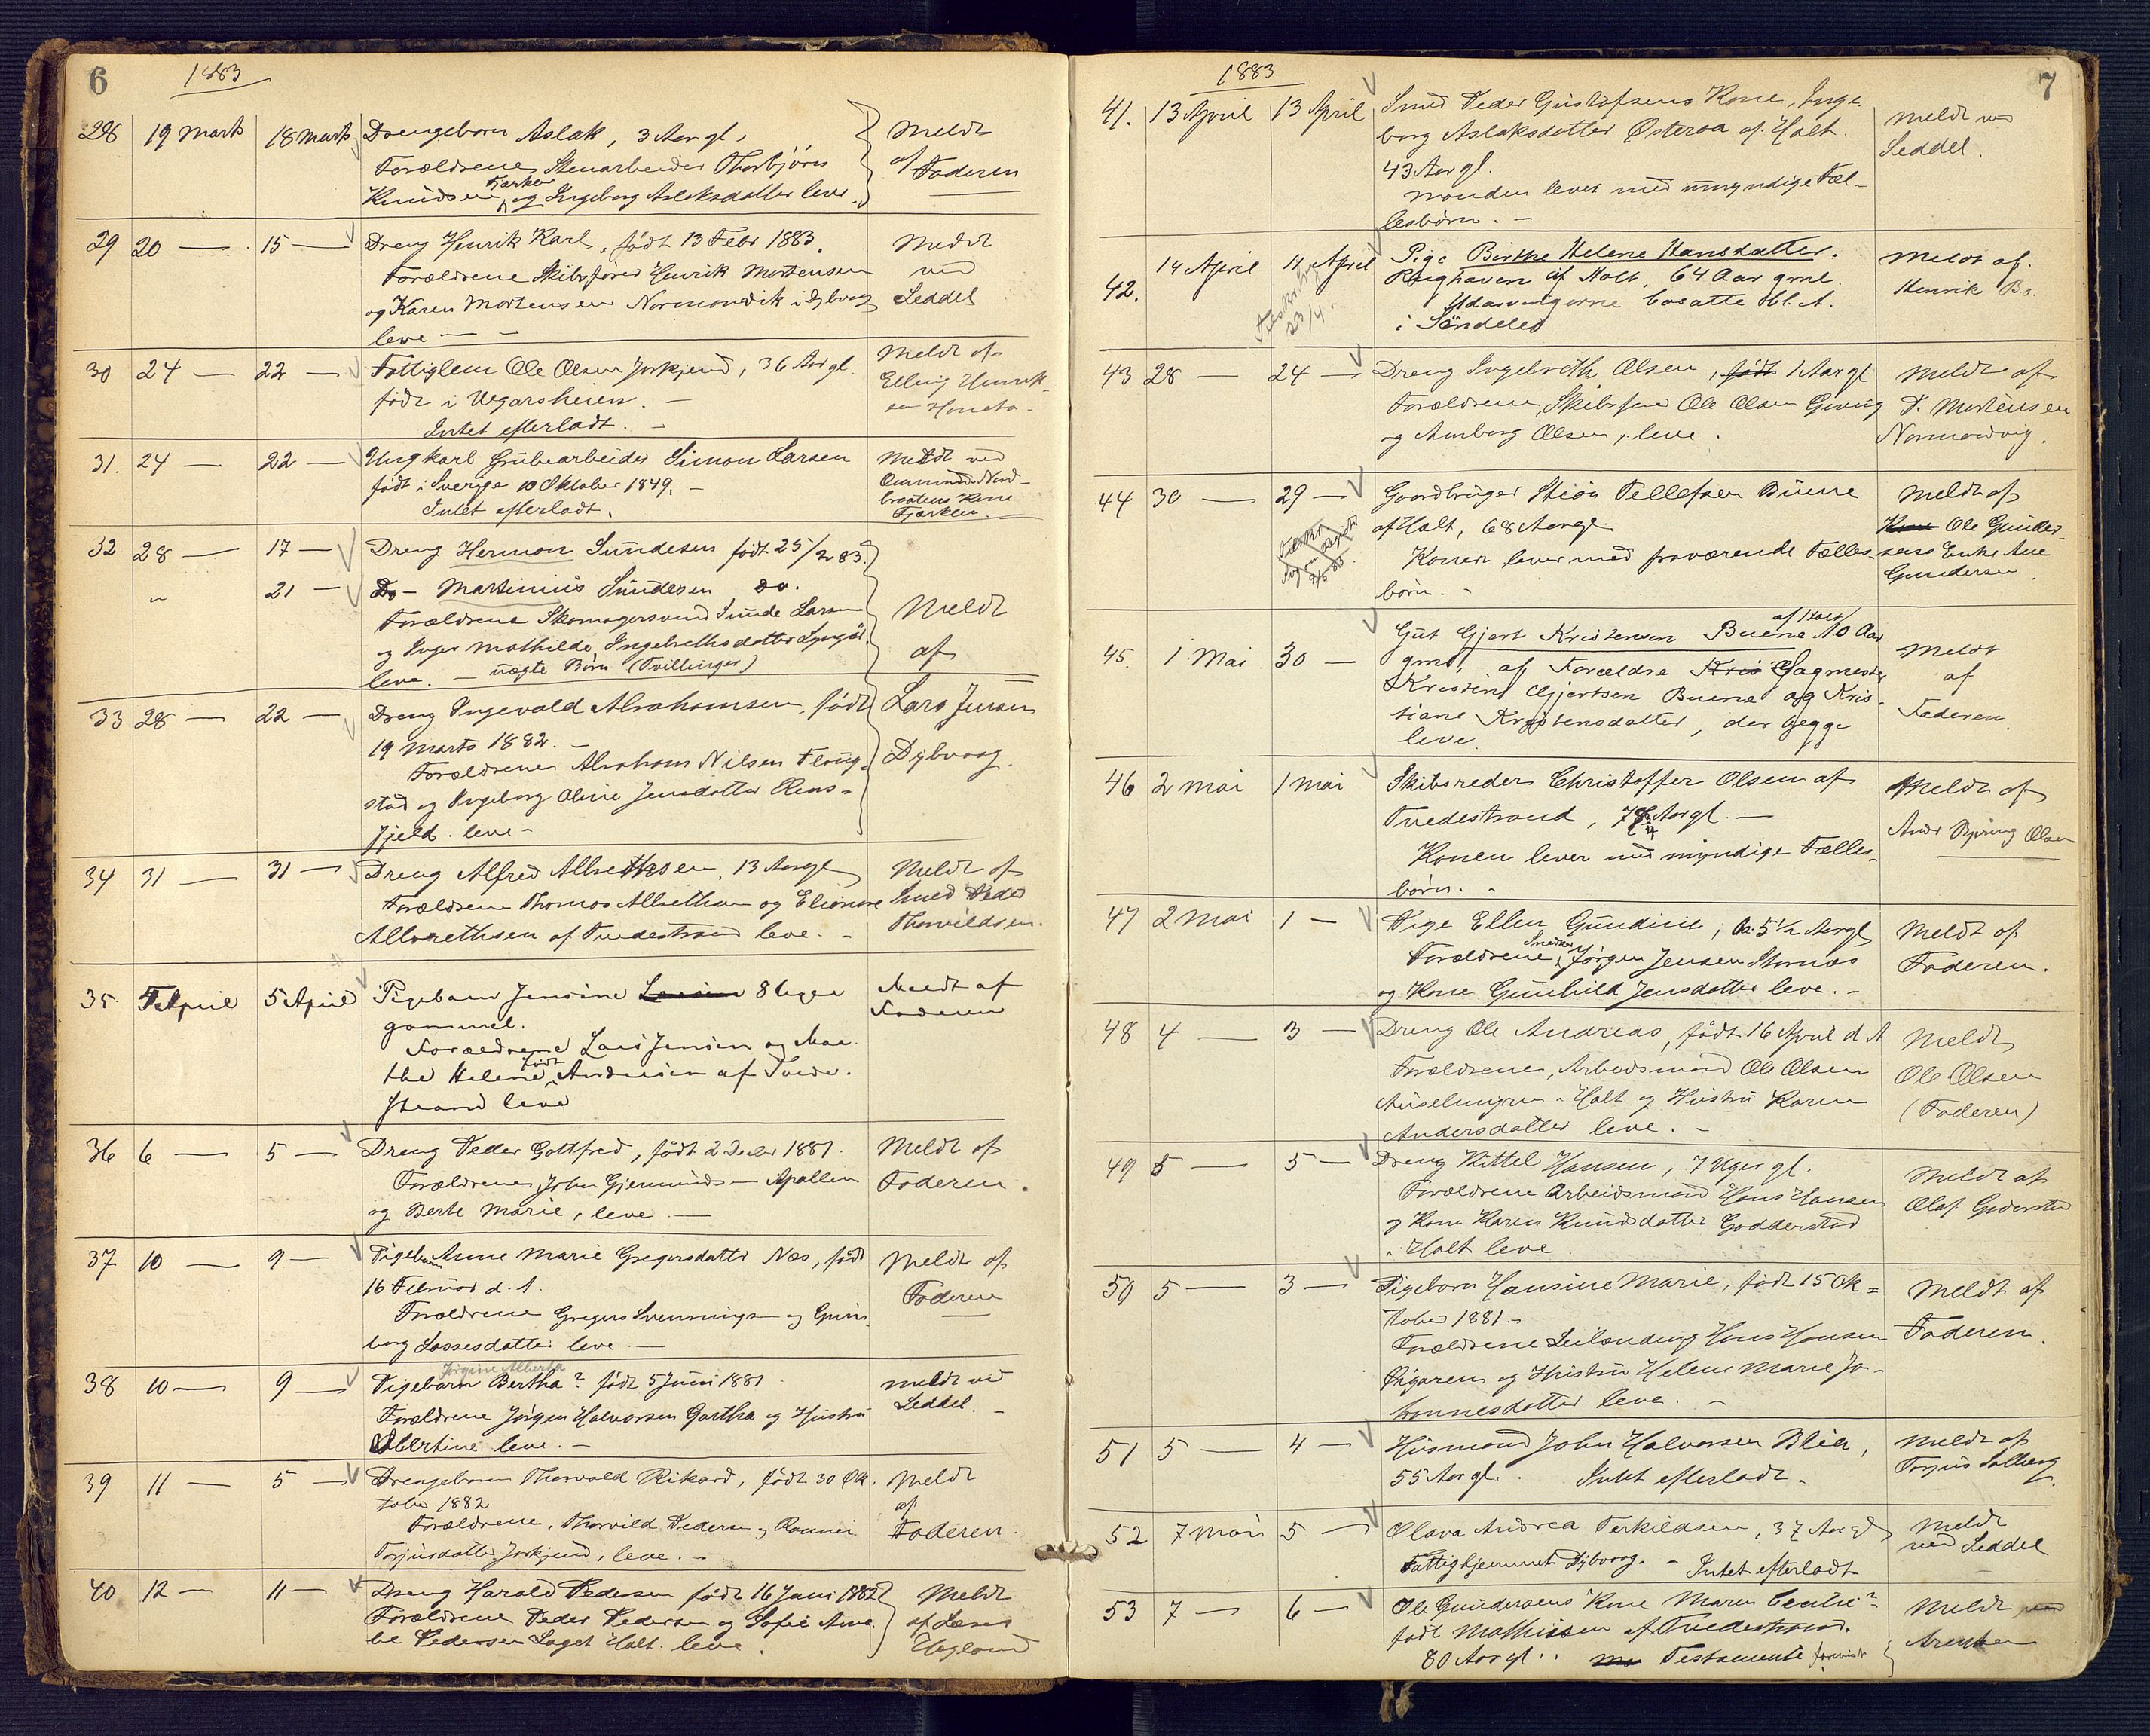 6
1883
28 19 Marts 18 Marts Drengebarn Aslak, 3 Aar gl. Meldt
Forældrene, Stenarbeider Thorbjörn af Faderen
Knudsen Fjærkin og Ingeborg Aslaksdatter leve.
29 20 — 15 — Dreng Henrik Karl, født 13 Febr 1883. Meldt
Forældrene Skibsfører Henrik Mortensen ved
og Karen Mortensen Normondvik i Dybvaag Seddel
leve —
30 24 — 22 — Fattiglem Ole Olsen Joskjend, 36 Aar gl. Meldt af
født i Vegarsheien. — Elling Henrik-
Intet efterladt. — sen
31. 24 — 22 — Ungkarl Grubearbeider Simon Larsen Meldt ved
født i Sverige 10 Oktober 1849. —
Intet efterladt. Kone
32 28 — 17 — Dreng Herman Sundesen født 25/2 83.
" 21 — Do — Martinius Sundesen do. Meldt
Forældrene Skomagersvend Sunde Larsen af
og Inger Mathilde Ingebrethsdatter
leve. — uægte Børn (Tvillinger)
33 28 — 22 — Dreng Ingevald Abrahamsen, født Lars Jensen
19 Marts 1882. — Dybvaag.
Forældrene Abraham Nilsen Flaug-
stad og Ingeborg Oline Jensdatter Rens-
fjeld. leve —
34 31 — 31 — Dreng Alfred Albrethsen, 13 Aar gl Meldt af
Forældrene Thomas Albrethsen og Elionore Smed Peder
Albrethsen af Tvedestrand leve. — Thorvildsen.
35 5 April 5 April Pigebarn Jensine 8 Uger Meldt af
gammel. Faderen
Forældrene Lars Jensen og Mar-
the Helene født Andersen af Tvede-
strand leve
36 6 — 5 — Dreng Peder Gottfred, født 2 Decbr 1881. Meldt af
Forældrene, John Gjermunds— Apallen Faderen.
og Berte Marie, leve —
37 10 — 9 — Pigebarn Anne Marie Gregersdatter Næs, født Meldt af
16 Februar d. A. Faderen
Forældrene Gregers Svennings— og Gun-
borg Lassesdatter leve. —
Jørgine Alberta
38 10 — 9 — Pigebarn Bertha? født 5 Juni 1881 meldt ved
Forældrene Jörgen Halvorsen Gartha og Hustru Seddel. —
Albertine leve. —
39 11 — 5 — Drengebarn Thorvald Rikard, født 30 Ok- Meldt
tober 1882 af
Forældrene, Thorvild Pedersen og Rannei Faderen.
Torjusdatter Joskjend, leve. —
40 12 — 11 — Dreng Harald Pedersen født 16 Juni 1882 Meldt
Forældrene Peder Pedersen og Sofie Ama- af
lie Pedersen Laget Holt. leve. Ugland
7
1883
41. 13 April 13 April Smed Peder Gustafsens Kone, Inge- Meldt ved
borg Aslaksdatter Østeraa af Holt. Seddel.
43 Aar gl.
Manden lever med umyndige Fæl-
lesbørn. —
42. 14 April 11 April Pige Birthe Helene Hansdatter. Meldt af
23/4. af Holt, 64 Aar gml. Henrik Bo.
Udarvingerne bosatte bl. A.
i Söndeled
43 28 — 24 — Dreng Ingebreth Olsen, født 1 Aar gl Meldt af
Forældrene, Skibsfører Ole Olsen Geving P. Mortensen
og Amborg Olsen, leve. Normondvig.
44 30 — 29 — Gaardbruger Stian Tellefsen Buene Meldt af
af Holt, 68 Aar gl. Kone Ole Gunder-
Konen lever med fraværende Fælles- sens Enke Ane
børn. — Gundersen
45. 1 Mai 30 — Gut Gjert Kristensen Buene af Holt 10 Aar Meldt
gml, af Forældre Kris Sagmester af
Kristen Gjertsen Buene og Kris- Faderen.
tiane Kristensdatter, der begge
leve.
46 2 Mai 1 Mai Skibsreder Christoffer Olsen af Meldt af
Tvedestrand, Aar gl. — Olsen
Konen lever med myndige Fælles-
børn. —
47 2 Mai 1 — Pige Ellen Gundine, ca. 5 1/2 Aar gl Meldt af
Forældrene, Snedker Jörgen Jensen Faderen.
og Kone Gunhild Jensdatter leve. —
48 4 — 3 — Dreng Ole Andreas, født 16 April d A Meldt
Forældrene, Arbeidsmand Ole Olsen Ole Olsen
i Holt og Hustru Karen (Faderen)
Andersdatter leve. —
49 5 — 5 — Dreng Kittel Hansen, 7 Uger gl. Meldt af
Forældrene Arbeidsmand Hans Hansen Olaf Goderstad
og Kone Karen Knudsdatter Godderstad
i Holt leve.
50 5 — 3 — Pigebarn Hansine Marie, født 15 Ok- Meldt af
tober 1881 — Faderen.
Forældrene Leilænding Hans Hansen
og Hustru Helene Marie Jo-
hannesdatter leve. —
51 5 — 4 — Husmand John Halvorsen Blia, Meldt af
55 Aar gl. Intet efterladt. Torjus Solberg
52 7 Mai 5 — Olava Andrea Terkildsen, 37 Aar gl Meldt
Fattighjemmet Dybvaag. — Intet efterladt ved Seddel
53 7 — 6 — Ole Gundersens Kone Maren Cecilie? Meldt ved
født Mathisen af Tvedestrand.
80 Aar gl. Testamente forevist